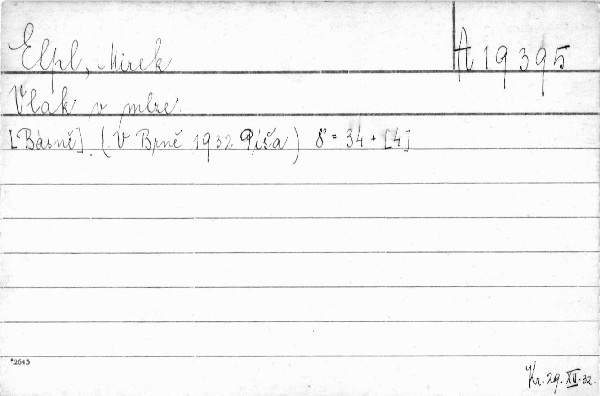 Elpl, Mirek
A 19395
Vlak v mlze.
[Básně]. (V Brně 1932 Píša) 8° 34 + [4]
*2643
Kr. 29. XII. 32.